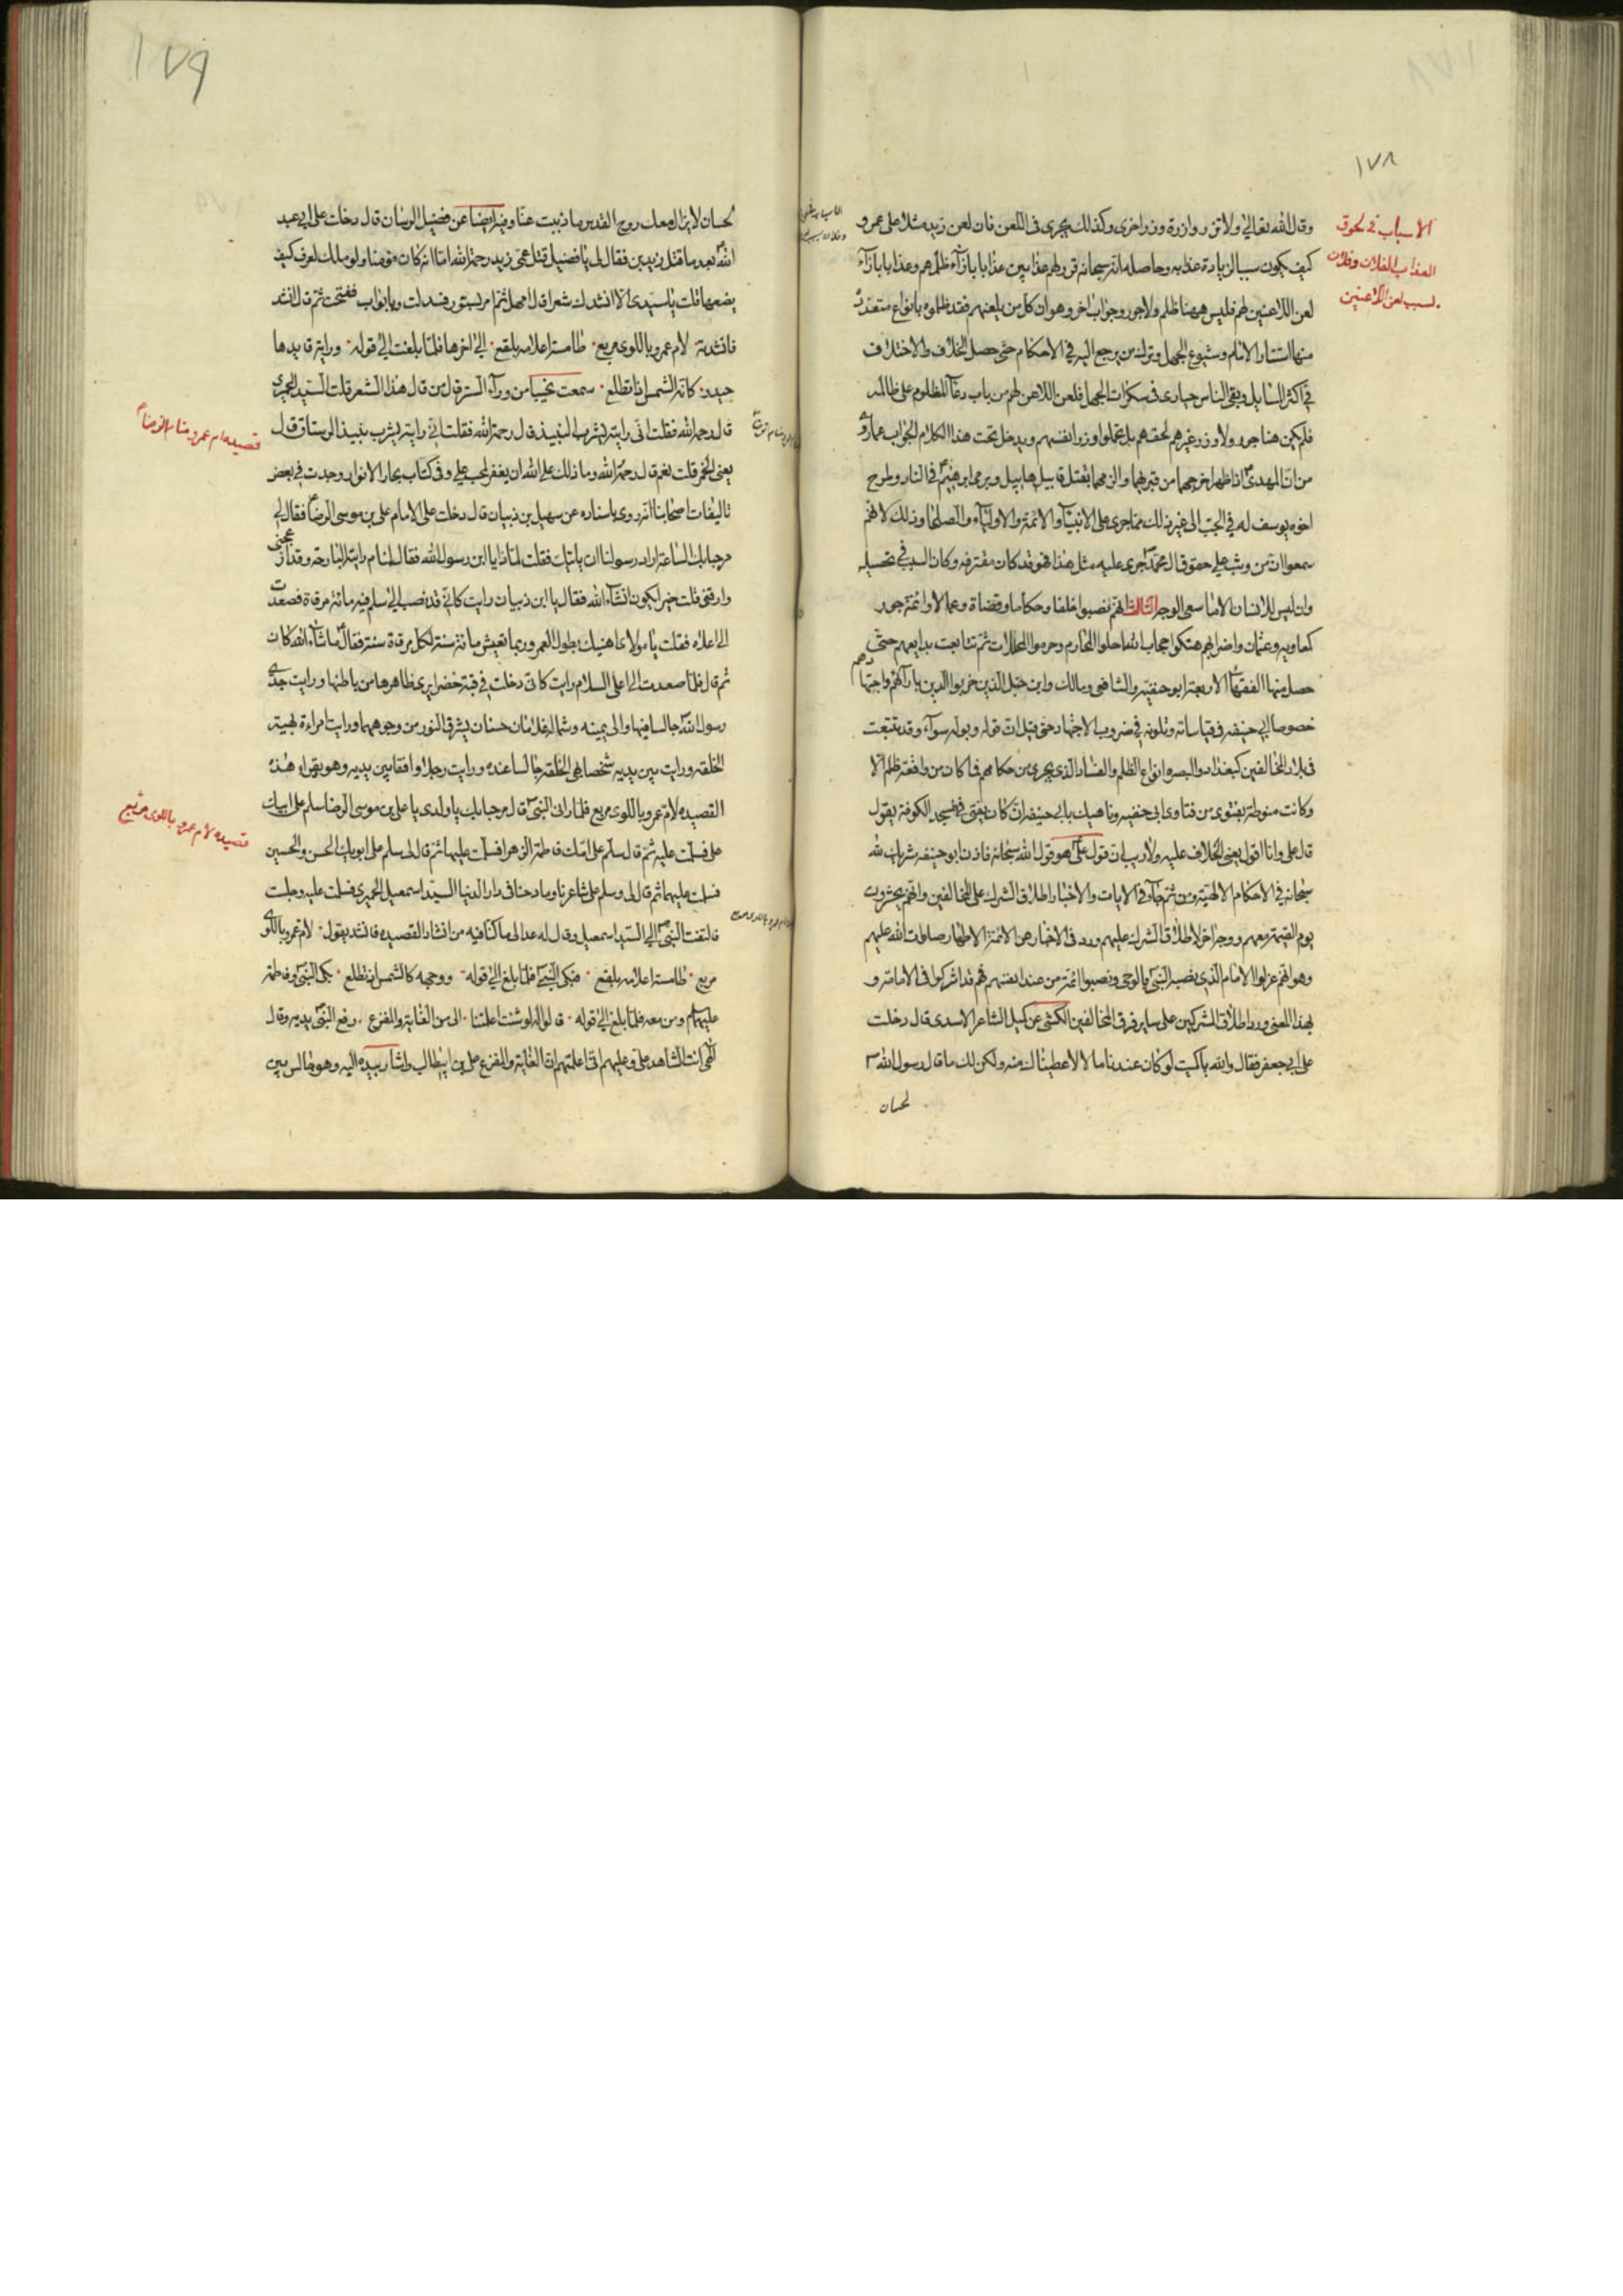 ١٧٨
الاسباب في لحوق
العذاب لفلان وفلان
بسبب لعن اللاعنين
وقال الله تعالى ولا تزر وازرة وزر اخرى وكذلك يجرى فى اللعن فان لعن زيد مثلا على عمرو
كيف يكون سببا لزيادة عذابه وحاصله انه سبحانه قرر لهم عذابين عذابا بازآء ظلمهم وعذابا بازآء
لعن اللاعنين لهم فليس ههنا ظلم ولا جور وجواب اخر وهو ان كل من يلعنهم فقد ظلموه بانواع متعددة
منها استتار الامام وشيوع الجهل وترك من يرجع اليه في الاحكام حتى حصل الخلاف والاختلاف
في اكثر المسايل وبقى الناس حيارى فى سكرات الجهل فلعن اللاعن لهم من باب دعآء المظلوم على ظالمه
فلم يكن هنا جور ولا وزر غيرهم لحقهم بل تحملوا وزر انفسهم ويدخل تحت هذا الكلام الجواب عما روى
من ان المهدى اذا ظهر اخرجهما من قبريهما والزمهما بقتل قابيل هابيل ويرمى ابرهيم في النار وطرح
اخوه يوسف له في الجب الى غير ذلك مما جرى على الانبيآء والائمة والاوليآء والصلحا وذلك لانهم
سمعوا ان من وثب على حقوق ال محمد جرى عليه مثل هذا فهو قد كان مقترفه وكان السبب في تحصيله
وان ليس للانسان الا ما سعى الوجه الثالث انهم نصبوا خلفا وحكاما وقضاة وعمالا وائمة جور
كمعاويه وعثمان واضرابهم هتكوا حجاب الله احلوا المحارم وحرموا المحللات ثم تتابعت بدايعهم حتى
حصل منها الفقهآء الاربعة ابو حنيفة والشافعى ومالك وابن حنبل الذين خربوا الدين بارآئهم واجتهادهم
خصوصا ابي حنيفه فى قياساته وتلونه في ضروب الاجتهاد حتى قيل ان قوله وبوله سوآء وقد تتبعت
فى بلاد المخالفين كبغداد والبصره انواع الظلم والفساد الذى يجرى من حكامهم فما كان من واقعة ظلم الا
وكانت منوطة بفتوى من فتاوى ابى حنيفه وناهيك بابي حنيفه انه كان يفتى في مسجد الكوفة يقول
قال على وانا اقول يعنى الخلاف عليه ولا ريب ان قول على هو قول الله سبحانه فاذن ابو حنيفه شريك لله
سبحانه في الاحكام الالهية ومن ثم جآء في الايات والاخبار اطلاق الشرك على المخالفين وانهم يحشرون
يوم القيمة معهم ووجه اخر لاطلاق الشرك عليهم ورد فى الاخبار عن الائمة الاطهار صلوات الله عليهم
وهو انهم عزلوا الامام الذى نصبه النبى بالوحى ونصبوا ائمة من عند انفسهم فهم قد اشركوا فى الامامة و
بهذا المعنى ورد اطلاق المشركين على ساير فرق المخالفين الكشى عن كميل الشاعر الاسدى قال دخلت
على ابى جعفر فقال والله يا كميت لو كان عندنا مال لاعطيناك منه ولكن لك ما قال رسول الله
لحسان
١٧٩
لحسان لا يزال معك روح القدس ما ذببت عنا وفيه ايضا عن فضيل الرسان قال دخلت على ابي عبد
الله بعد ما قتل زيد بن فقال لى يا فضيل قتل عمى زيد رحمة الله اما انه كان مؤمنا ولو ملك لعرف كيف
يضعها قلت يا سيدى الا انشدك شعرا قال امهل ثم امر بستور فسدلت وبابواب ففتحت ثم قال انشد
فانشدته لام عمرو باللوى مربع طامسة اعلامه بلقع الى اخرها فلما بلغت الى قوله وراية قايدها
حيدر كانه الشمس اذا تطلع سمعت نحيبا من ورآء الستر قال من قال هذا الشعر قلت السيد الحميرى
قال رحمه الله فقلت انى رايته يشرب النبيذ قال رحمه الله فقلت اني رايته يشرب نبيذ الرستاق قال
يعنى الخمر قلت نعم قال رحمه الله وما ذلك على الله ان يغفر لمحب على وفى كتاب بحار الانوار وجدت في بعض
تاليفات اصحابنا انه روى باسناده عن سهيل بن ذبيان قال دخلت على الامام على بن موسى الرضا فقال لي
مرحبا بك الساعة اراد رسولنا ان ياتيك فقلت لماذا يا ابن رسول الله فقال لمنام رايته البارحة وقد ازعجنى
وارقنى قلت خير لكون انشآء الله فقال يا ابن ذبيان رايت كانى قد نصب لي سلم فيه مائة مرقاة فصعدت
الى اعلاه فقلت يا مولاى اهنيك بطول العمر وربما تعيش مائة سنة لكل مرقاة سنة فقال ما شآء الله كان
ثم قال فلما صعدت الى اعلى السلم رايت كانى دخلت في قبة خضرا يرى ظاهرها من باطنها ورايت جدى
رسول الله جالسا فيها والى يمينه وشماله غلامان حسنان يشرق النور من وجوههما ورايت امراءة بهية
الخلقة ورايت بين يديه شخصا بهى الخلقة جالسا عنده ورايت رجلا واقفا بين يديه وهو يقراء هذه
القصيده لام عمرو باللوى مربع فلما رانى النبى قال مرحبا بك يا ولدى يا على بن موسى الرضا سلم على ابيك
على فسلمت عليه ثم قال سلم على امك فاطمة الزهرا فسلمت عليها ثم قال لى سلم على ابويك الحسن والحسين
فسلمت عليهما ثم قال لى وسلم على شاعرنا ومادحنا فى دار الدنيا السيد اسمعيل الحميرى فسلمت عليه وجلست
فالتفت النبى الى السيد اسمعيل وقال له عد الى ما كنا فيه من انشاد القصيده فانشد يقول لام عمرو باللوى
مربع طامسة اعلامه بلقع فبكى النبي فلما بلغ الى قوله ووجهه كالشمس اذ تطلع بكى النبى وفاطمة
عليهما السلم ومن معه فلما بلغ الى قوله قالوا له لو شئت اعلمتنا الى من الغاية والمفزع رفع النبى يديه وقال
الهى انت الشاهد على وعليهم انى اعلمتهم ان الغاية والمفزع على بن ابيطالب واشار بيده اليه وهو جالس بين
قصيده ام عمرو منام الرضا
قصيده لام عمرو باللوى مربع